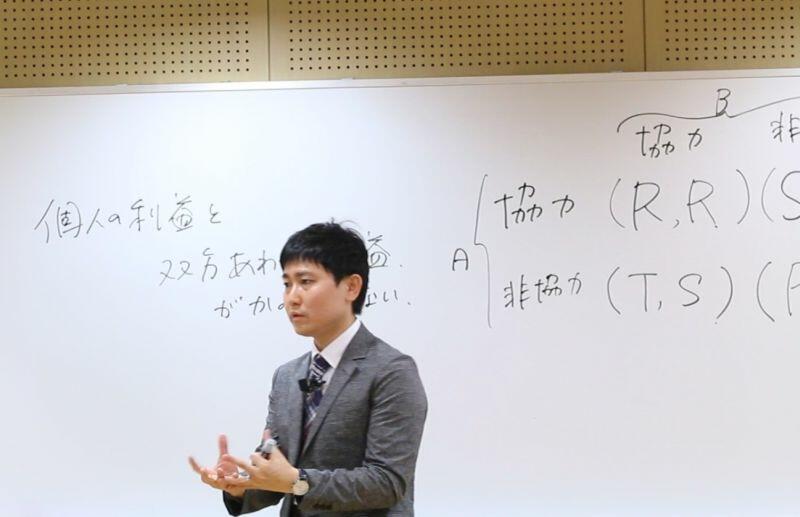 個人の利益と
双方あわ 益.
がか ない.
B
協力 非
A
協力 (R,R)(S
非協力 (T,S)(P